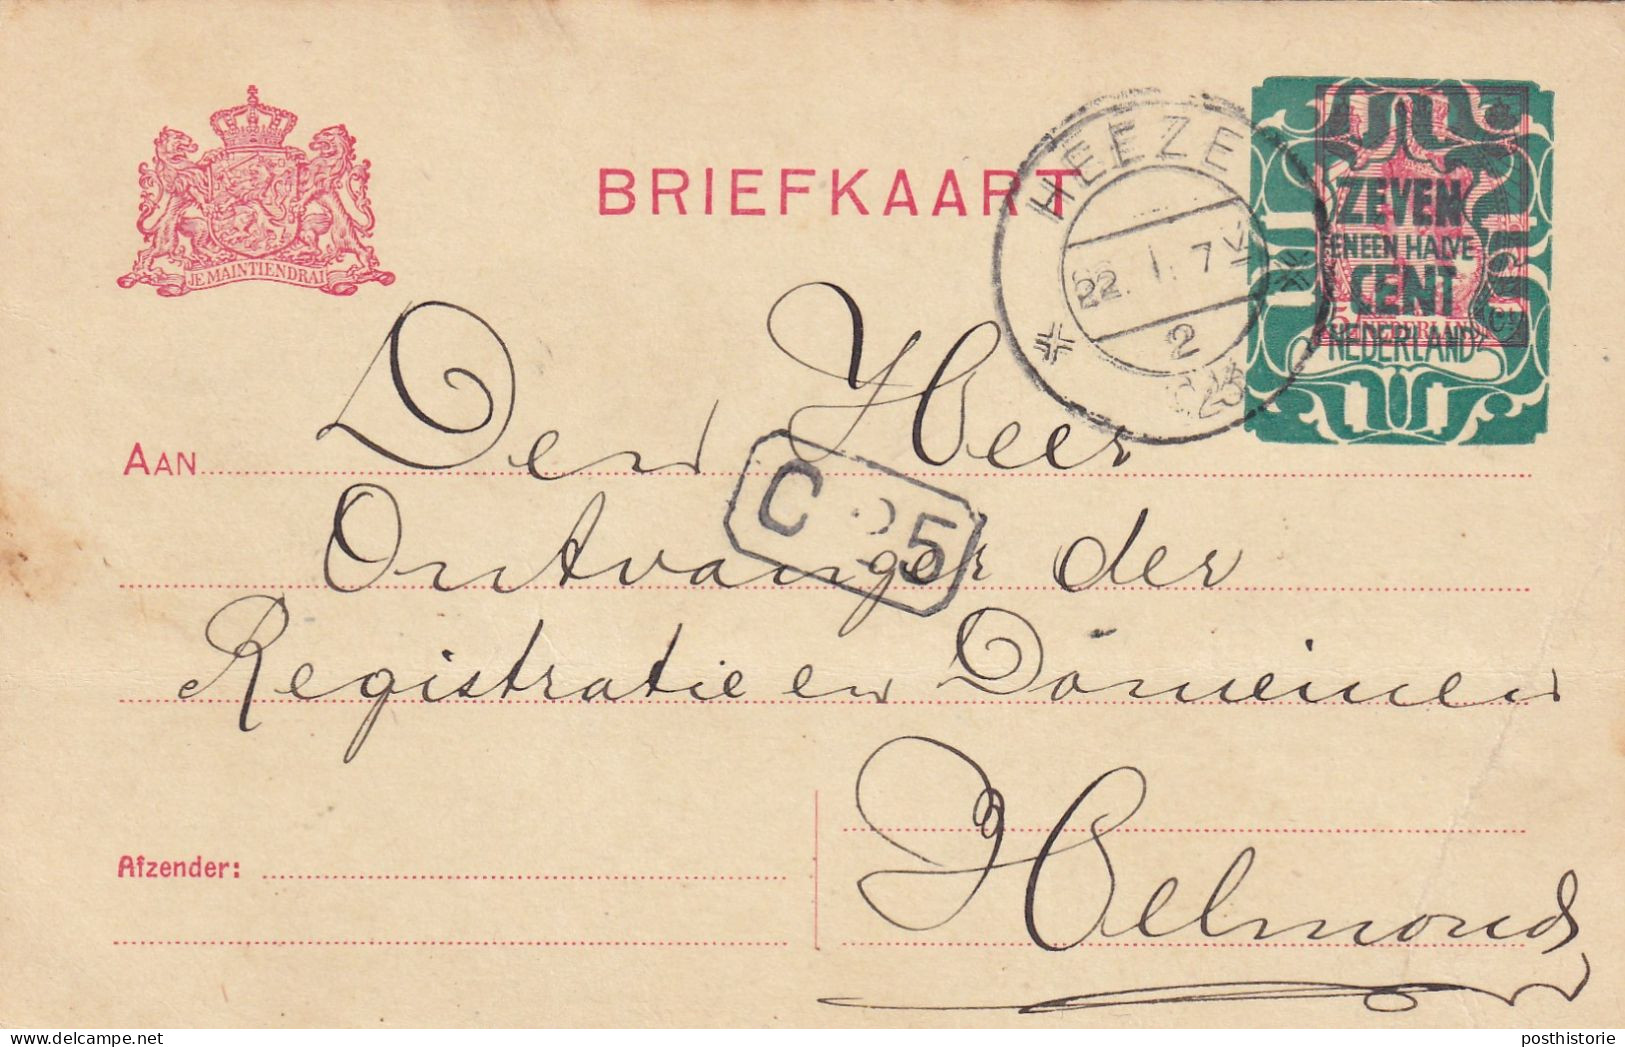 BRIEFKAART
JE MAINTIENDRAI
HEEZE
22. 1. 7
2
23
ZEVEN
EENEEN HALVE
CENT
NEDERLAND
AAN Den Heer
C 25
Ontvanger der
Registratie en Domeinen
Helmond
Afzender:
posthistorie